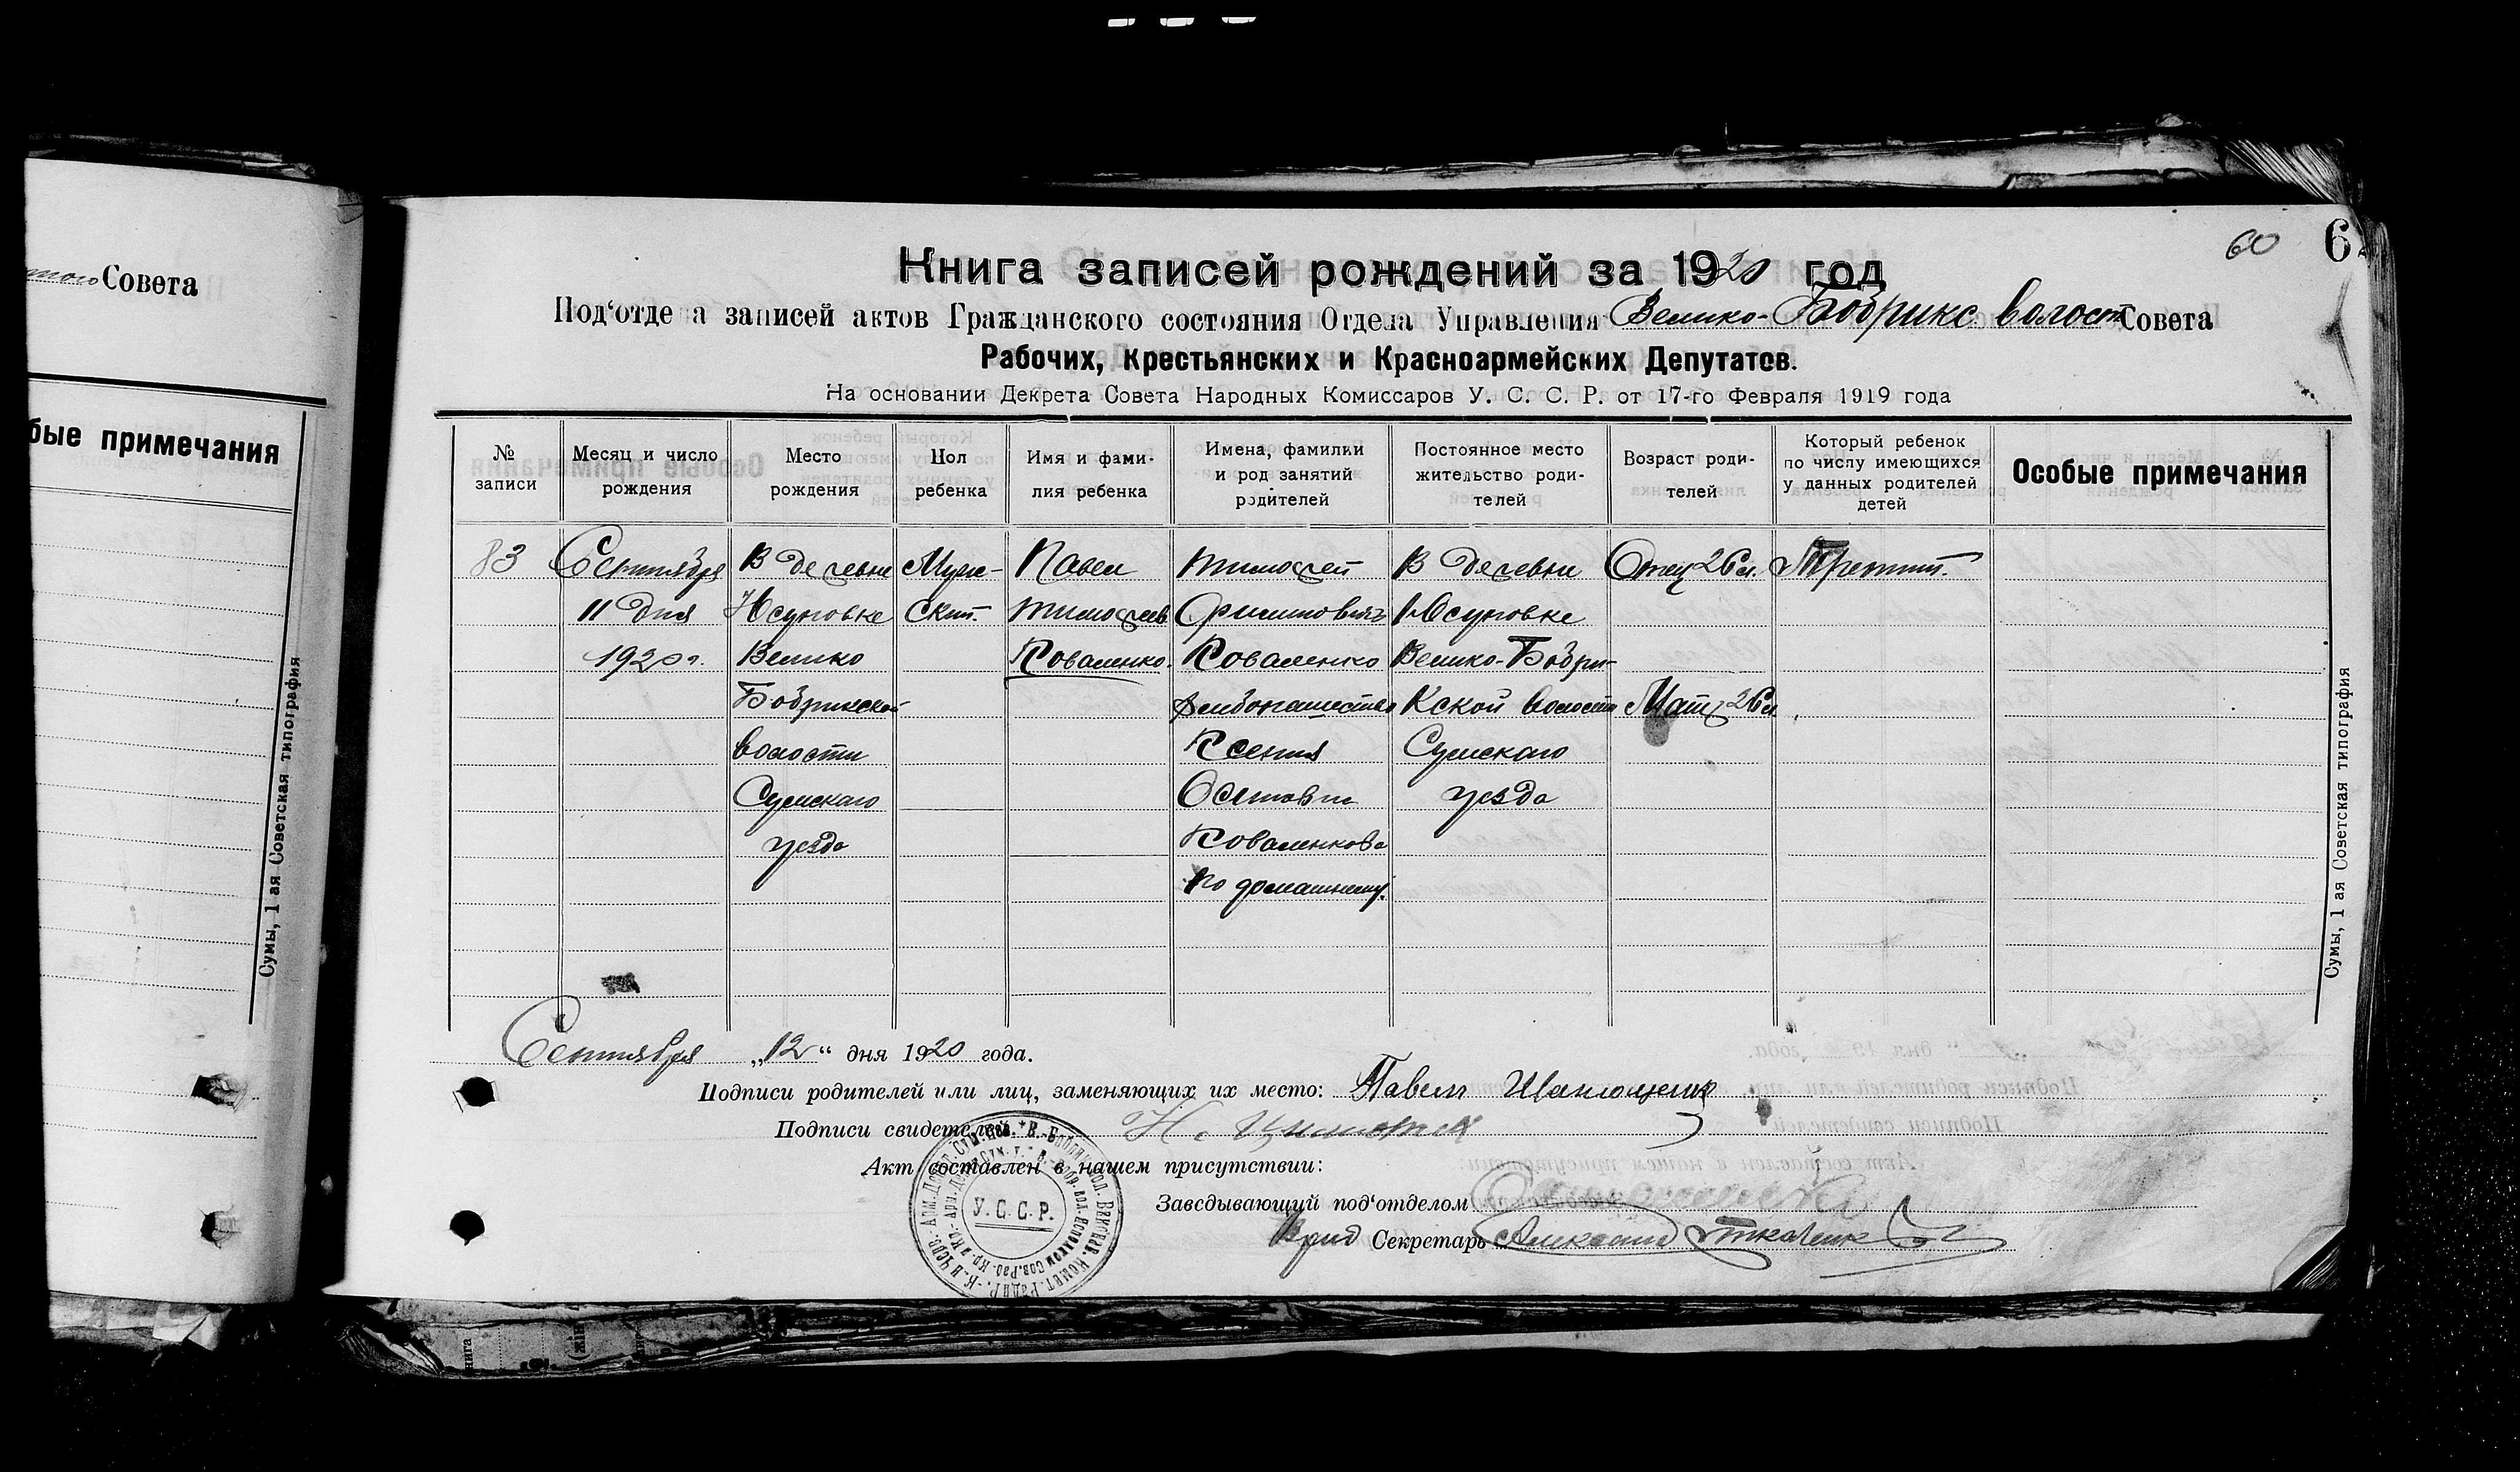 Совета
бые примечания
Сумы, 1 ая Советская типография
60
6
Книга записей рождений за 1920 год
Под‘отдела записей актов Гражданского состояния Отдела Управления Велико-Бобрикс. волост. Совета
Рабочих, Крестьянских и Красноармейских Депутатов.
На основании Декрета Совета Народных Комиссаров У. С. С. Р. от 17-го Февраля 1919 года
№ записи
Месяц и число рождения
Место рождения
Пол ребенка
Имя и фами-
лия ребенка
Имена, фамилии
и род занятий
родителей
Постоянное место
жительство роди-
телей
Возраст роди-
телей
Который ребенок
по числу имеющихся
у данных родителей
детей
Особые примечания
83
Сентября
11 дня
1920 г.
В деревне
Юсуповке
Велико
Бобрикской
волости
Сумскаго
уезда
Муж-
ской.
Павел
Тимофеев
Коваленко.
Тимофей
Коваленко
хлебопашество
Ксения
Осиповна
Коваленкова
по домашнему.
В деревни
Юсуповке
Велико-Бобри-
кской волости
Сумскаго
уезда
Отец 26 л.
Мать 26 л.
Третий.
Сентября „12“ дня 1920 года.
Подписи родителей или лиц, заменяющих их место: Павел
Подписи свидетелей
Акт составлен в нашем присутствии:
Заведывающий под‘отделом
Врид Секретарь Александ Ткаченк
У. С. С. Р.
Сумы, 1 ая Советская типография